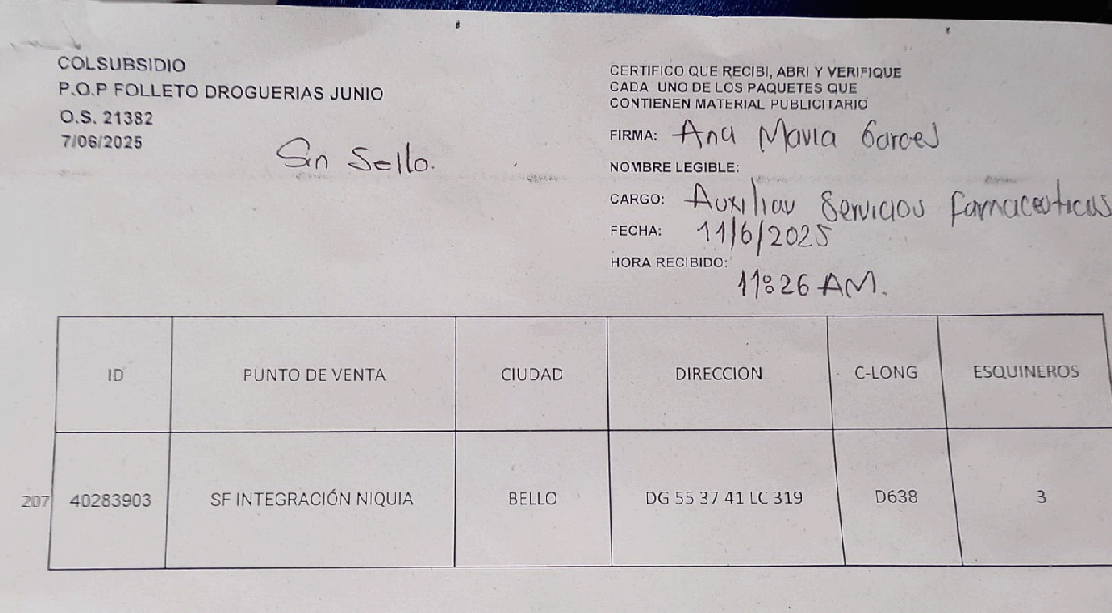 COLSUBSIDIO
P.O.P FOLLETO DROGUERIAS JUNIO
O.S. 21382
7/06/2025
Sin Sello.
CERTIFICO QUE RECIBI, ABRI Y VERIFIQUE
CADA UNO DE LOS PAQUETES QUE
CONTIENEN MATERIAL PUBLICITARIO
FIRMA: Ana Maria Garces
NOMBRE LEGIBLE:
CARGO: Auxiliar Servicios farmaceuticos
FECHA: 11/6/2025
HORA RECIBIDO: 11:26 AM.
ID PUNTO DE VENTA CIUDAD DIRECCION C-LONG ESQUINEROS
207 40283903 SF INTEGRACIÓN NIQUIA BELLO DG 55 37 41 LC 319 D638 3